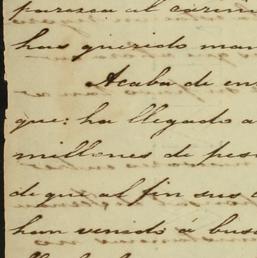 parezca al cariñ
has querido man
Acaba de en
que: ha llegado a
millones de pes
de que al fin sus
han venido á bus